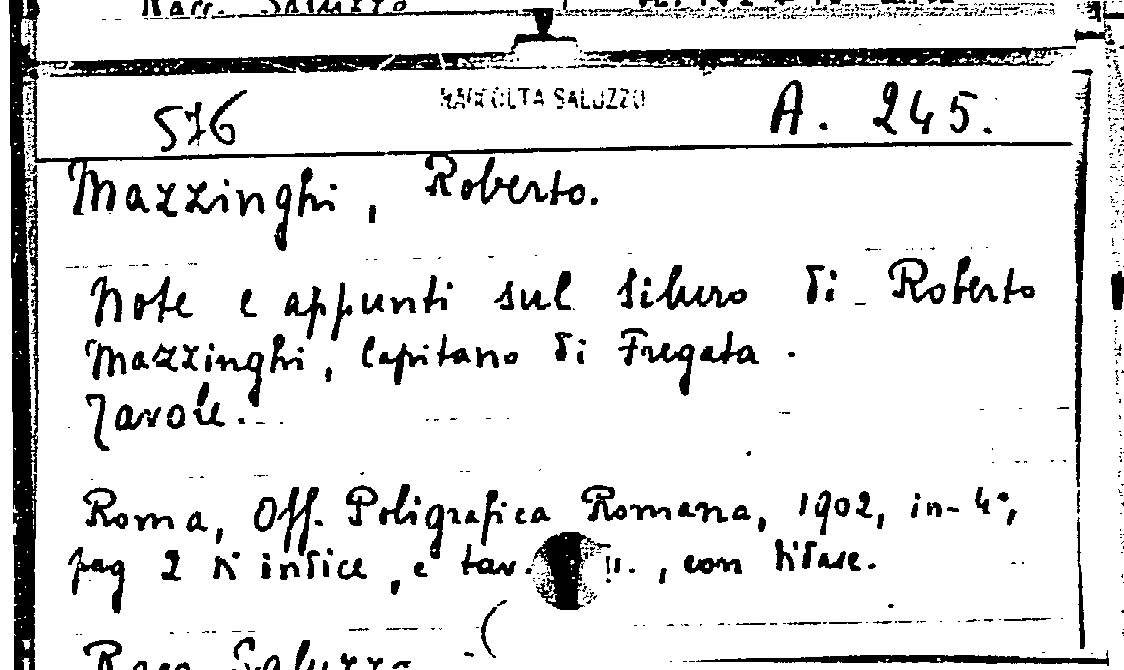 Racc. Saluzzo
576 RACCOLTA SALUZZO A. 245.
Mazzinghi, Roberto.
Note e appunti sul siluro di Roberto
Mazzinghi, Capitano di Fregata.
Tavole.
Roma, Off. Poligrafica Romana, 1902, in-4°,
pag 2 di indice, e tav. , con
Racc. Saluzzo